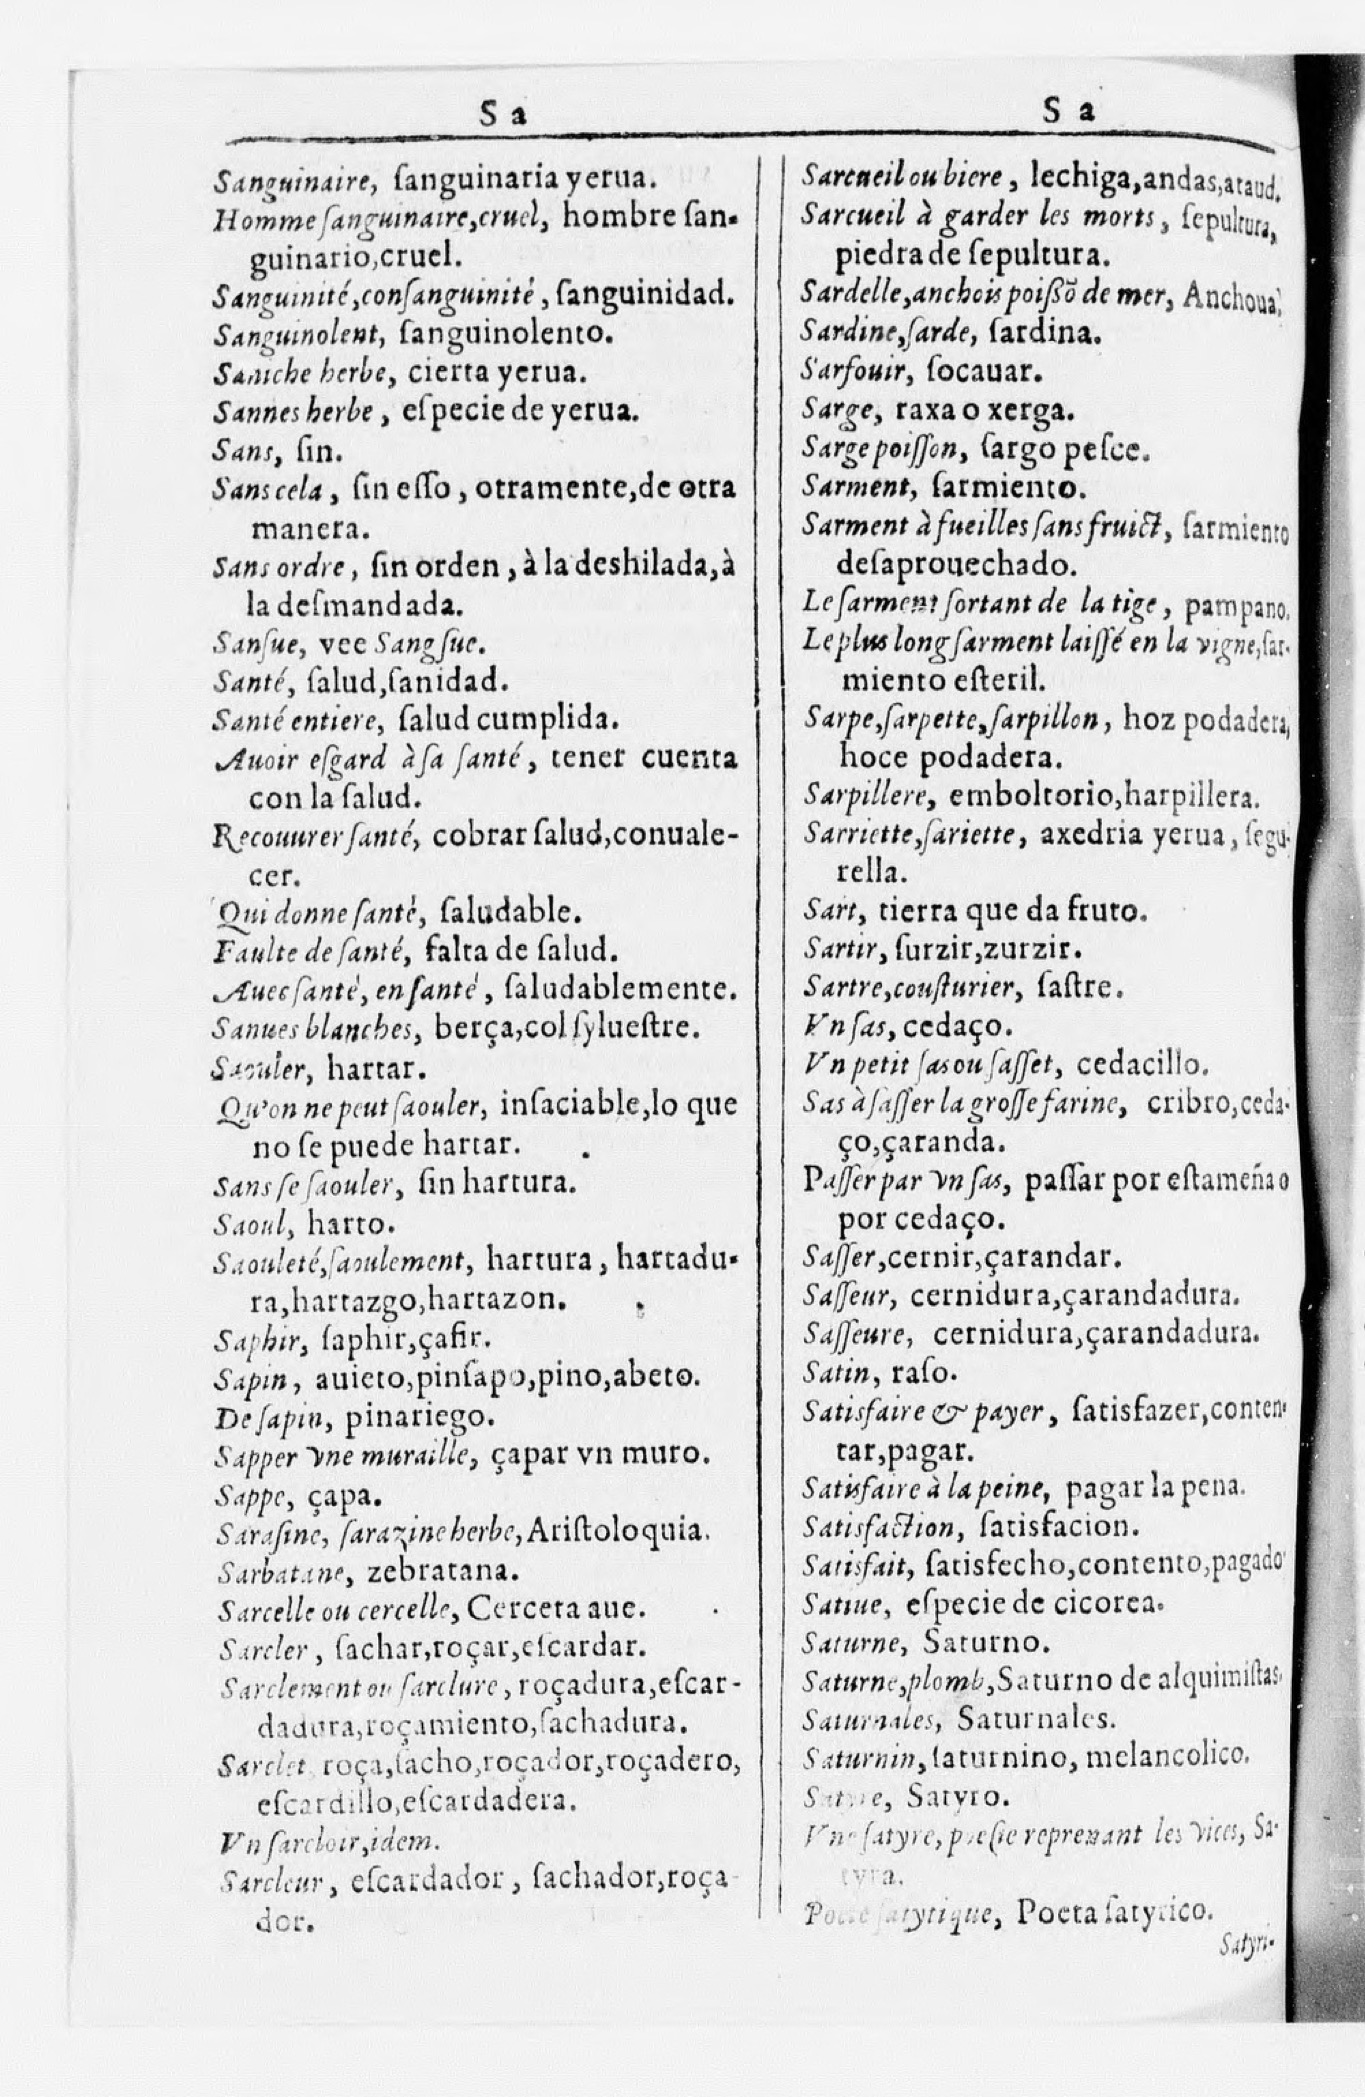 S a
Sanguinaire, ſanguinaria yerua.
Homme ſanguinaire,cruel, hombre ſan-
guinario,cruel.
Sanguinité,conſanguinité, ſanguinidad.
Sanguinolent, ſanguinolento.
Saniche herbe, cierta yerua.
Sannes herbe, eſpecie de yerua.
Sans, ſin.
Sans cela, ſin eſſo, otramente,de otra
manera.
Sans ordre, ſin orden, à la deshilada,à
la deſmandada.
Sanſue, vee Sangſue.
Santé, ſalud,ſanidad.
Santé entiere, ſalud cumplida.
Auoir eſgard à ſa ſanté, tener cuenta
con la ſalud.
Recouurer ſanté, cobrar ſalud,conuale-
cer.
Qui donne ſanté, ſaludable.
Faulte de ſanté, falta de ſalud.
Auec ſanté, en ſanté, ſaludablemente.
Sanues blanches, berça,col ſylueſtre.
Saouler, hartar.
Qu'on ne peut ſaouler, inſaciable,lo que
no ſe puede hartar.
Sans ſe ſaouler, ſin hartura.
Saoul, harto.
Saouleté,ſaoulement, hartura, hartadu-
ra,hartazgo,hartazon.
Saphir, ſaphir,çafir.
Sapin, auieto,pinſapo,pino,abeto.
De ſapin, pinariego.
Sapper vne muraille, çapar vn muro.
Sappe, çapa.
Saraſine, ſarazine herbe, Ariſtoloquia.
Sarbatane, zebratana.
Sarcelle ou cercelle, Cerceta aue.
Sarcler, ſachar,roçar,eſcardar.
Sarclement ou ſarclure, roçadura,eſcar-
dadura,roçamiento,ſachadura.
Sarclet, roça,ſacho,roçador,roçadero,
eſcardillo,eſcardadera.
Vn ſarcloir,idem.
Sarcleur, eſcardador, ſachador,roça-
dor.
S a
Sarcueil ou biere, lechiga,andas,ataud.
Sarcueil à garder les morts, ſepultura,
piedra de ſepultura.
Sardelle,anchois poiſſõ de mer, Anchoua.
Sardine,ſarde, ſardina.
Sarfouir, ſocauar.
Sarge, raxa o xerga.
Sarge poiſſon, ſargo peſce.
Sarment, ſarmiento.
Sarment à fueilles ſans fruict, ſarmiento
deſaprouechado.
Le ſarment ſortant de la tige, pampano.
Le plus long ſarment laiſſé en la vigne,ſar-
miento eſteril.
Sarpe,ſarpette,ſarpillon, hoz podadera,
hoce podadera.
Sarpillere, emboltorio,harpillera.
Sarriette,ſariette, axedria yerua, ſegu-
rella.
Sart, tierra que da fruto.
Sartir, ſurzir,zurzir.
Sartre,couſturier, ſaſtre.
Vn ſas, cedaço.
Vn petit ſas ou ſaſſet, cedacillo.
Sas à ſaſſer la groſſe farine, cribro,ceda-
ço,çaranda.
Paſſer par vn ſas, paſſar por eſtameña o
por cedaço.
Saſſer,cernir,çarandar.
Saſſeur, cernidura,çarandadura.
Saſſeure, cernidura,çarandadura.
Satin, raſo.
Satisfaire & payer, ſatisfazer,conten-
tar,pagar.
Satisfaire à la peine, pagar la pena.
Satisfaction, ſatisfacion.
Satisfait, ſatisfecho,contento,pagado
Satiue, eſpecie de cicorea.
Saturne, Saturno.
Saturne,plomb,Saturno de alquimiſtas.
Saturnales, Saturnales.
Saturnin, ſaturnino, melancolico.
Satyre, Satyro.
Vne ſatyre, poeſie reprenant les vices, Sa-
tyra.
Poete ſatyrique, Poeta ſatyrico.
Satyri-